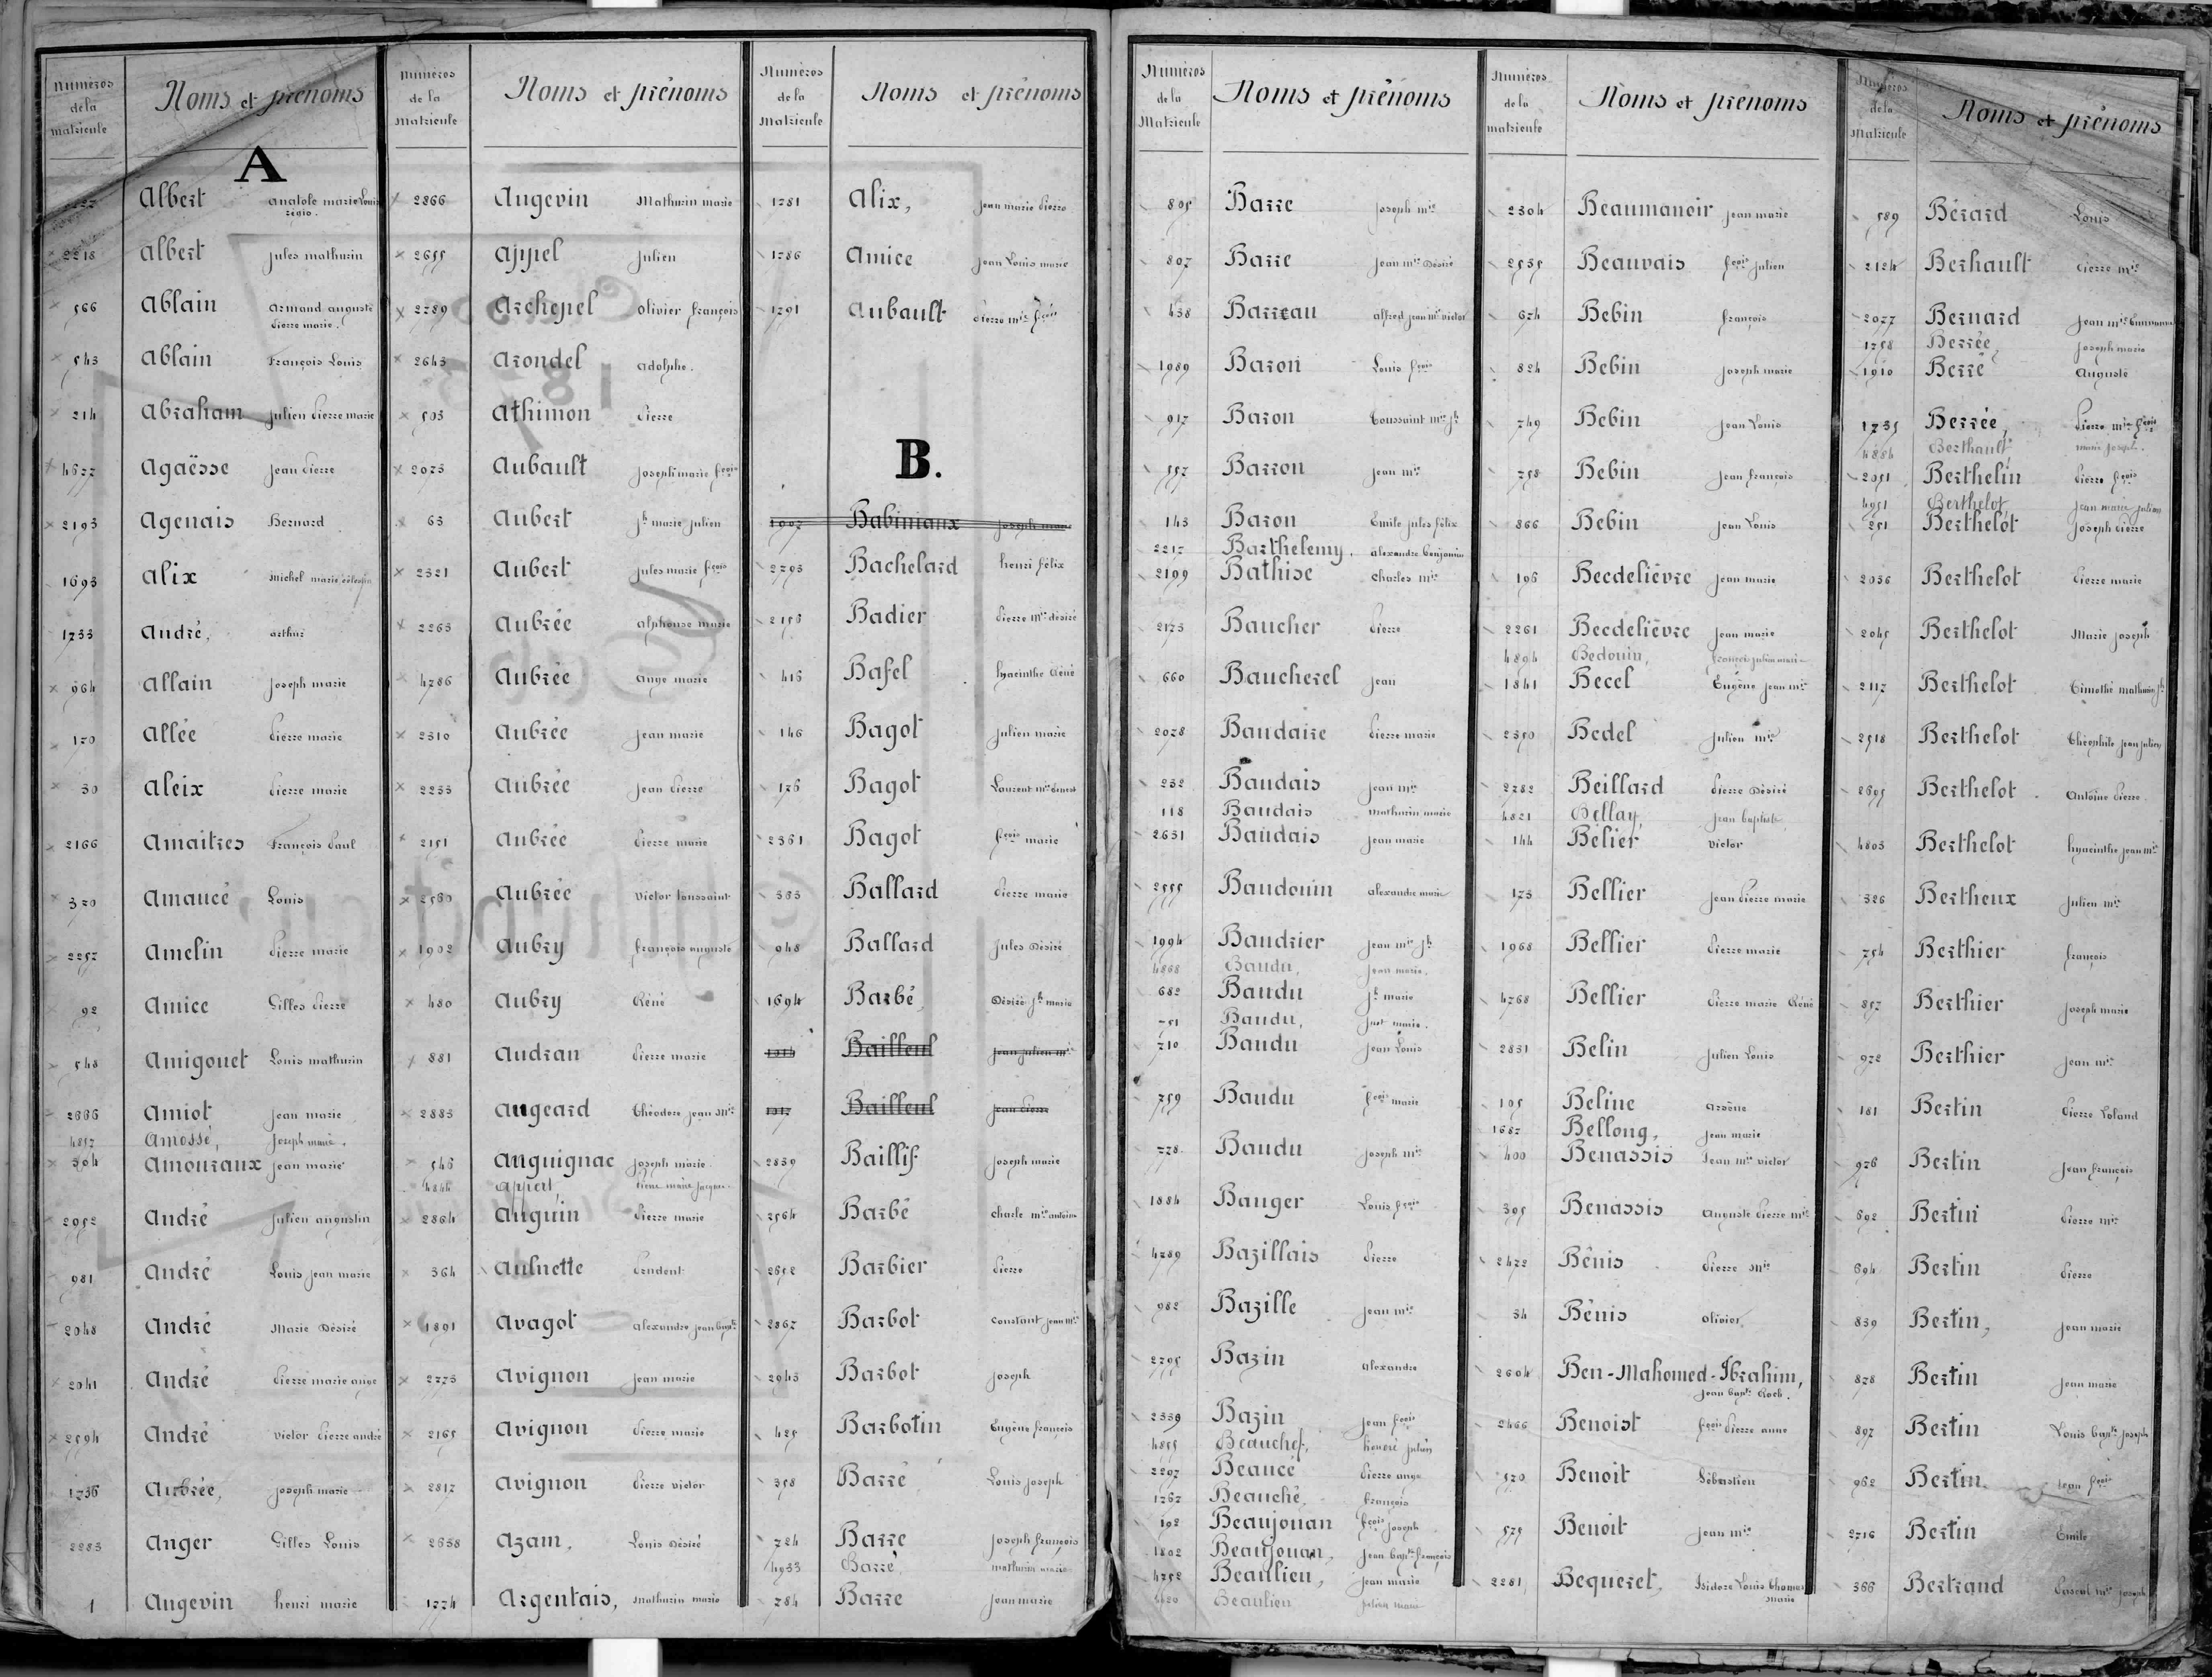 Numéros de la matricule
Noms et prénoms
A
Albert Anatole marie Louis
régis.
2218 Albert Jules mathurin
566 Ablain Armand auguste
Pierre marie.
543 Ablain François Louis
214 Abraham Julien Pierre marie
4677 Agaësse Jean Pierre
2193 Agenais Bernard
1693 Alix Michel marie célestin
1733 André, arthur
964 Allain Joseph marie
170 Allée Pierre marie
30 Aleix Pierre marie
2166 Amaitres François Paul
370 Amaucé Louis
2257 Amelin Pierre marie
92 Amice Gilles Pierre
548 Amigouet Louis mathurin
2666 Amiot Jean marie
4857 Amossé, Joseph marie.
304 Amouraux Jean marie
2952 André Julien augustin
981 André Louis Jean marie
2048 André Marie Désiré
2041 André Pierre marie ange
2594 André victor Pierre andré
1736 Aubrée, Joseph marie
2283 Anger Gilles Louis
1 Angevin henri marie
Numéros de la Matricule
Noms et prénoms
2866 Angevin Mathurin marie
2655 Appel Julien
2789 Archepel olivier françois
2643 Arondel Adolphe.
503 Athimon Pierre
2073 Aubault Joseph marie fçois
63 Aubert Jh marie Julien
2321 Aubert Jules marie fçois
2263 Aubrée alphonse marie
4786 Aubrée Ange marie
2310 Aubrée Jean marie
2233 Aubrée Jean Pierre
2151 Aubrée Pierre marie
2560 Aubrée Victor toussaint
1902 Aubry françois auguste
480 Aubry Réné
881 Audran Pierre marie
2883 Augeard Théodore Jean Mie
546 Anguignac Joseph marie
4844 Appert, Pierre marie Jacques
2864 Anguin Pierre marie
364 Aulnette Prudent
1891 Avagot Alexandre Jean Bapte
2773 Avignon Jean marie
2165 Avignon Pierre marie
2817 Avignon Pierre victor
2638 Azam, Louis Désiré
1774 Argentais, Mathurin marie
Numéros de la Matricule
Noms et prénoms
1781 Alix, Jean marie Pierre
1786 Amice Jean Louis marie
1791 Aubault Pierre mie fçois
B.
1907 Babiniaux Joseph marie
2293 Bachelard henri félix
2156 Badier Pierre Mie désiré
416 Bafel hyacinthe Réné
146 Bagot Julien marie
176 Bagot Laurent mie ernest
2361 Bagot fçois marie
363 Ballard Pierre marie
948 Ballard Jules Désiré
1694 Barbé, Désiré Jh marie
Bailleul Jean Julien mie
Bailleul Jean Pierre
2839 Baillif Joseph marie
2564 Barbé charle mie antoine
2652 Barbier Pierre
2867 Barbot Constant Jean Mie
2943 Barbot Joseph
425 Barbotin Eugène françois
358 Barré Louis Joseph
724 Barre Joseph françois
4933 Barré, mathurin marie
784 Barre Jean marie
Numéros de la Matricule
Noms et prénoms
805 Barre Joseph mie
807 Barre Jean mie Désiré
438 Barreau alfred Jean mie victor
1989 Baron Louis fçois
917 Baron Toussaint mie Jh
557 Barron Jean mie
143 Baron Emile Jules félix
2217 Barthelemy. alexandre benjamin
2199 Bathise Charles mie
2173 Baucher Pierre
660 Baucherel Jean
2028 Baudaire Pierre marie
232 Baudais Jean mie
118 Baudais mathurin marie
2631 Baudais Jean marie
2555 Baudouin Alexandre marie
1994 Baudrier Jean mie Jh
4868 Baudu, Jean marie.
682 Baudu Jh marie
751 Baudu, Just marie.
710 Baudu Jean Louis
759 Baudu fçois marie
778 Baudu Joseph mie
1884 Bauger Louis fçois
4789 Bazillais Pierre
982 Bazille Jean mie
2795 Bazin Alexandre
2339 Bazin Jean fçois
4855 Beauchef, honoré Julien
2297 Beaucé Pierre ange
1767 Beauché, françois
192 Beaujouan fçois Joseph
1802 Beaujouan, Jean Bapte françois
4752 Beaulieu, Jean marie
Beaulieu Julien marie
Numéros de la matricule
Noms et prénoms
2304 Beaumanoir Jean marie
2535 Beauvais fçois Julien
674 Bebin françois
824 Bebin Joseph marie
749 Bebin Jean Louis
758 Bebin Jean françois
866 Bebin Jean Louis
196 Becdelièvre Jean marie
2261 Becdelièvre Jean marie
4894 Bedouin, françois Julien marie
1841 Becel Eugène Jean mie
2350 Bedel Julien mie
2782 Beillard Pierre Désiré
4821 Bellay, Jean baptiste
144 Bélier victor
173 Bellier Jean Pierre marie
1968 Bellier Pierre marie
4768 Bellier Pierre marie Réné
2831 Belin Julien Louis
105 Beline Arsène
1687 Bellong, Jean marie
400 Benassis Jean mie victor
395 Benassis Auguste Pierre mie
2472 Bénis Pierre Mie
34 Bénis olivier
2604 Ben-Mahomed-Ibrahim,
Jean Bapte Roch.
2466 Benoist fçois Pierre anne
570 Benoit Sébastien
575 Benoit Jean mie
2281 Bequeret, Isidore Louis Thomas
marie
Numéros de la Matricule
Noms et prénoms
589 Bérard Louis
2124 Berhault Pierre mie
2077 Bernard Jean mie
1758 Berrée, Joseph marie
1910 Berré Auguste
1735 Berrée, Pierre mie fçois
4884 Berthault, marie Joseph.
2051 Berthelin Pierre fçois
4951 Berthelot, Jean marie Julien
251 Berthelot Joseph Pierre
2036 Berthelot Pierre marie
2045 Berthelot Marie Joseph
2117 Berthelot Timothé mathurin Jh
2518 Berthelot Théophile Jean Julien
2695 Berthelot Antoine Pierre
4803 Berthelot hyacinthe Jean Mie
326 Bertheux Julien mie
754 Berthier françois
857 Berthier Joseph marie
972 Berthier Jean mie
181 Bertin Pierre Roland
976 Bertin Jean françois
692 Bertin Pierre mie
694 Bertin Pierre
839 Bertin, Jean marie
878 Bertin Jean marie
897 Bertin Louis Bapte Joseph
962 Bertin Jean fçois
2716 Bertin Emile
366 Bertrand Pascal mie Joseph